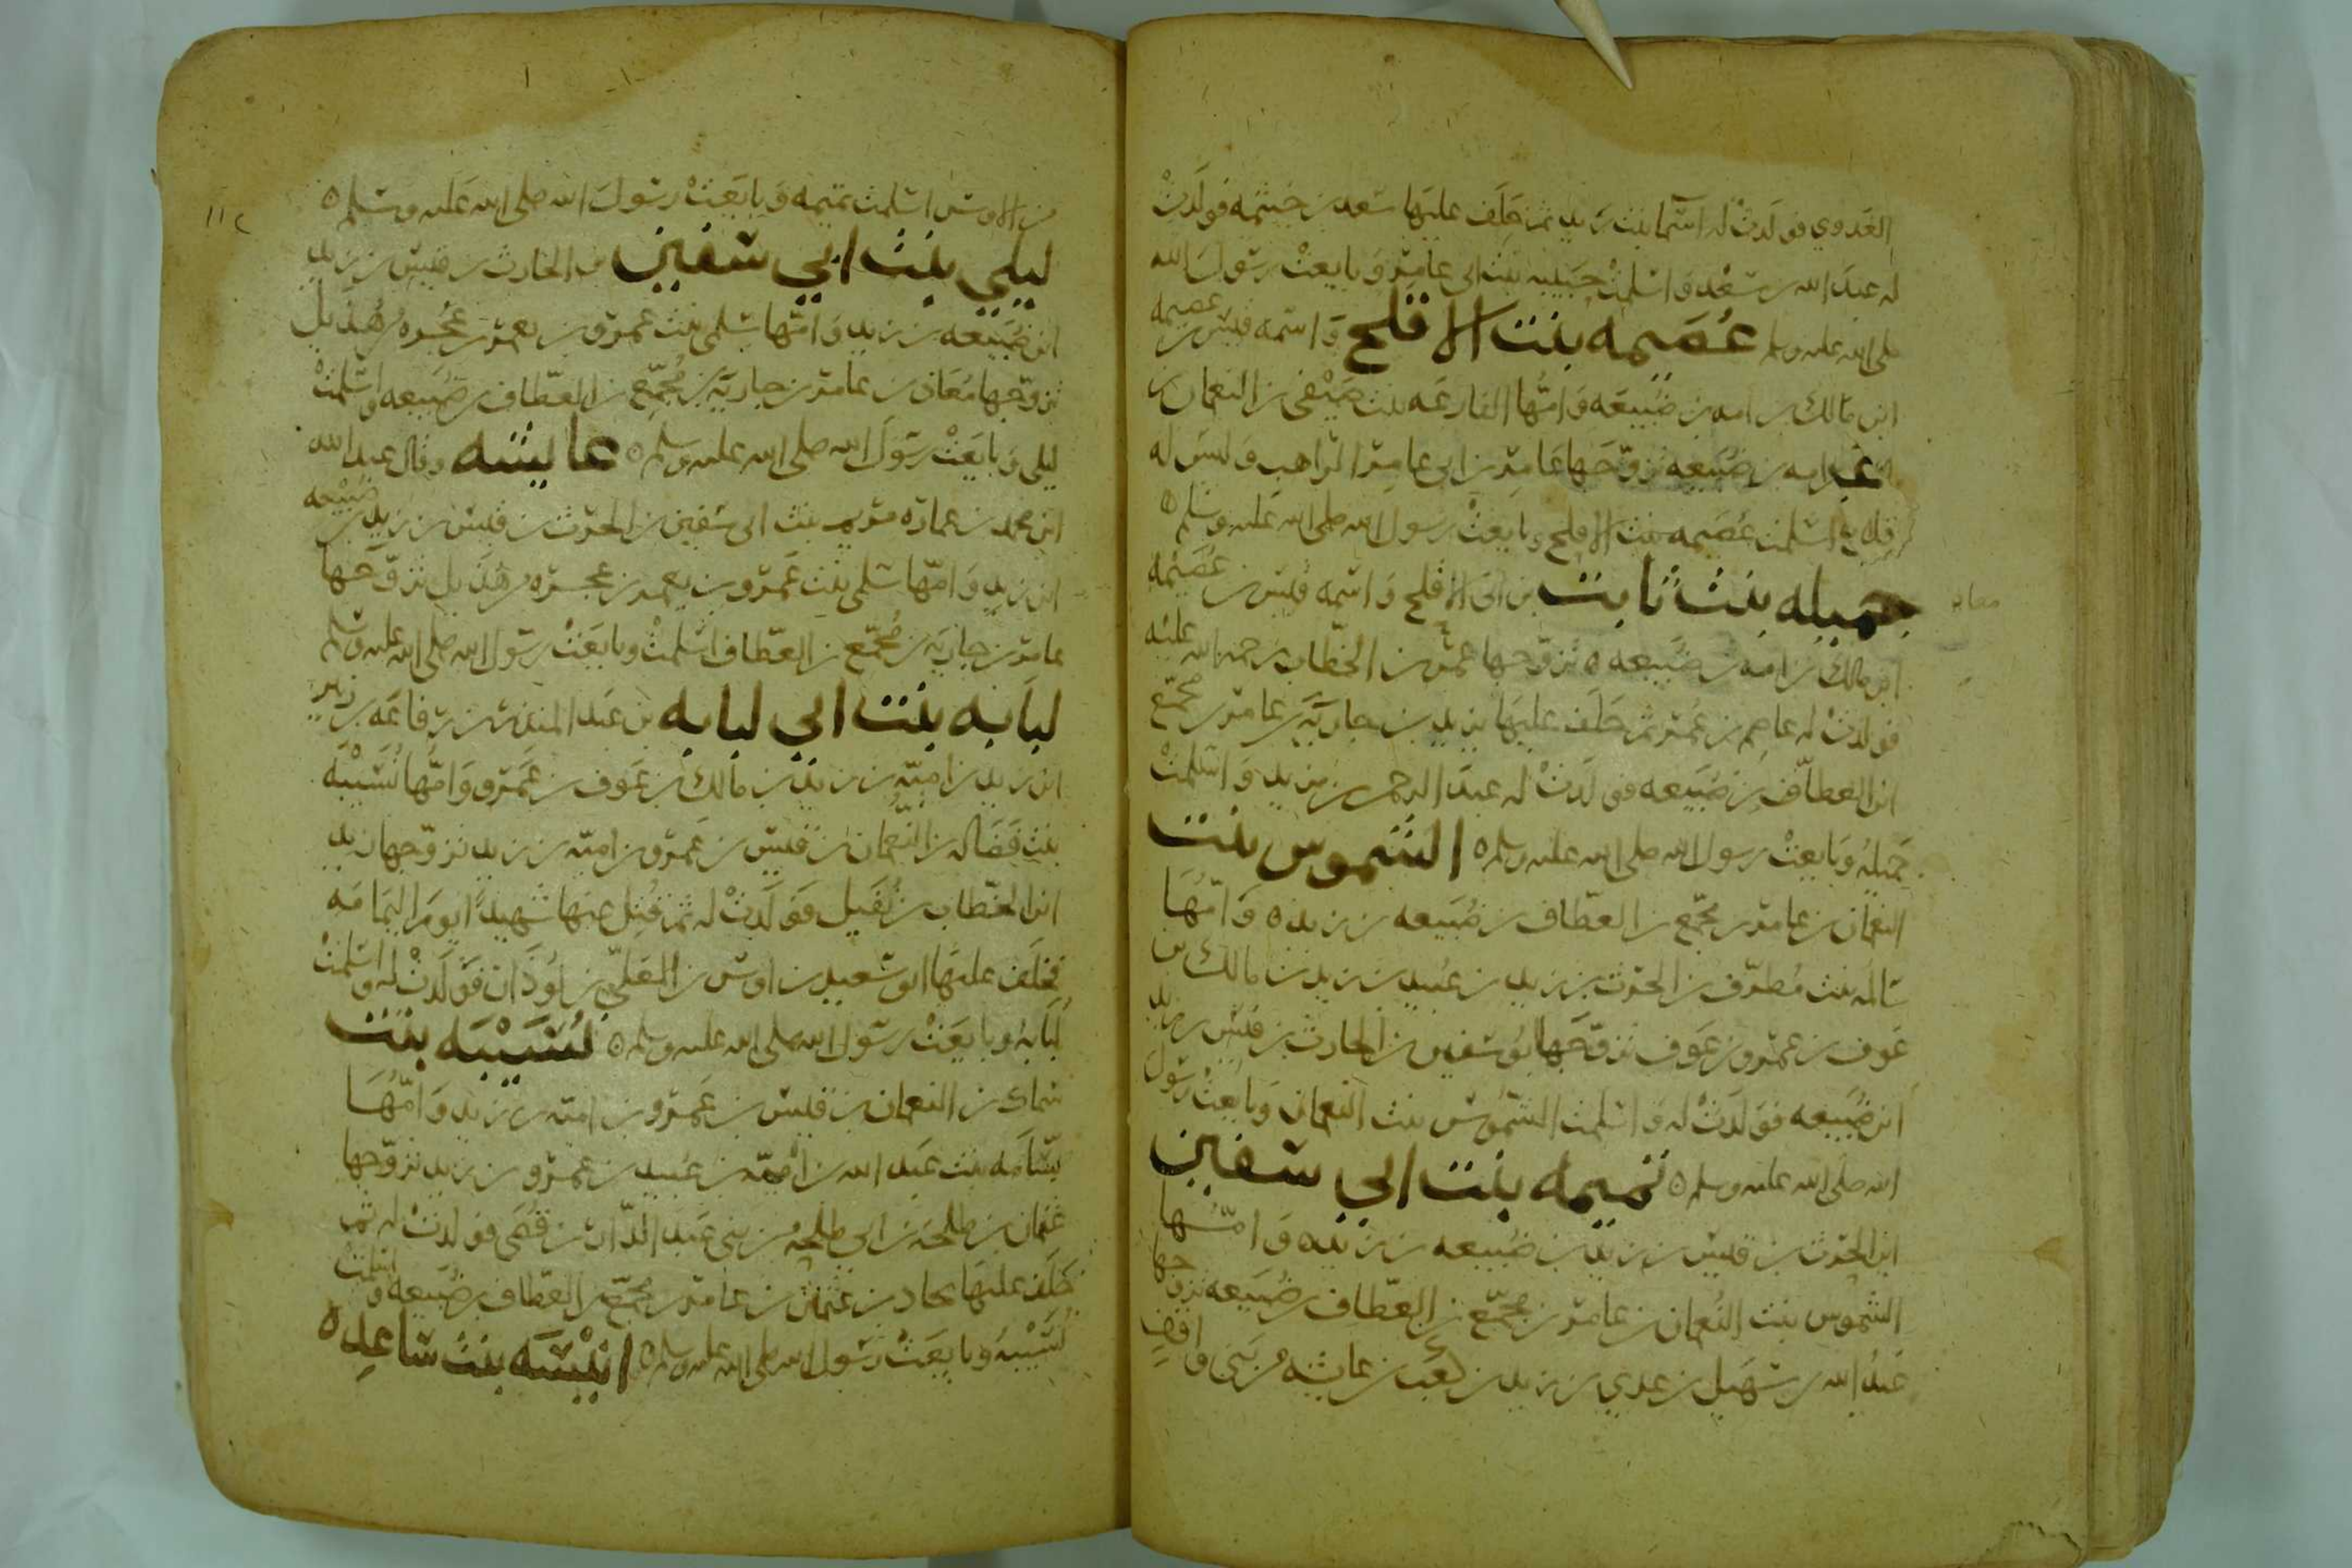 العدوي فولدت له اسما بنت زيد ثم خلف عليها سعد بن خيثمه فولدت
له عبد الله بن سعد واسلمت حبيبه بنت ابي عامر وبايعت رسول الله
صلى الله عليه وسلم عصيمه بنت الافلح واسمه قيس بن عصيمه
ابن مالك بن امه بن ضبيعه وامها الفارعه بنت صيفي بن النعمان بن
امه بن ضبيعه تزوجها عامر بن ابي عامر الراهب وليس له
اسلمت عصيمه بنت الافلح وبايعت رسول الله صلى الله عليه وسلم ه
جميله بنت ثابت بن ابي الافلح واسمه قيس بن عصيمه
ابن مالك بن امه بن ضبيعه ه تزوجها عمر بن الخطاب رحمه الله عليه
فولدت له عاصم بن عمر ثم خلف عليها يزيد بن جاريه بن عامر بن مجمع
ابن العطاف بن ضبيعه فولدت له عبد الرحمن بن يزيد واسلمت
جميله وبايعت رسول الله صلى الله عليه وسلم ه الشموس بنت
النعمان بن عامر بن مجمع بن العطاف بن ضبيعه بن زيد ه وامها
سالمه بنت مطرف بن الحرث بن زيد بن عبيد بن زيد بن مالك بن
عوف بن عمرو بن عوف تزوجها ابو سفين بن الحارث بن قيس بن زيد
ابن ضبيعه فولدت له واسلمت الشموس بنت النعمان وبايعت رسول
الله صلى الله عليه وسلم ه تميمه بنت ابي سفين
ابن الحرث بن قيس بن زيد بن ضبيعه بن زيد ه وامها
الشموس بنت النعمان بن عامر بن مجمع بن العطاف بن ضبيعه تزوجها
عبد الله بن سهيل بن عدي بن زيد بن كعب بن عايشه من بني واقف
١١٢
من الاوس اسلمت تميمه وبايعت رسول الله صلى الله عليه وسلم ه
ليلى بنت ابي سفين بن الحارث بن قيس بن زيد
ابن ضبيعه بن زيد وامها سلمى بنت عمرو بن يعمر بن عجره من هذيل
تزوجها معان بن عامر بن جاريه بن مجمع بن العطاف بن ضبيعه واسلمت
ليلى وبايعت رسول الله صلى الله عليه وسلم ه عايشه وقال عبد الله
ابن محمد بن عماره مريم بنت ابي سفين بن الحرث بن قيس بن زيد بن ضبيعه
ابن زيد وامها سلمى بنت عمرو بن يعمر بن عجره من هذيل تزوجها
عامر بن جاريه بن مجمع بن العطاف اسلمت وبايعت رسول الله صلى الله عليه وسلم
لبابه بنت ابي لبابه بن عبد المنذر بن رفاعه بن زنبر
ابن زيد بن اميه بن زيد بن مالك بن عوف بن عمرو وامها نسيبه
بنت فضاله بن النعمان بن قيس بن عمرو بن اميه بن زيد تزوجها زيد
ابن الخطاب بن نفيل فولدت له ثم قتل عنها شهيدا يوم اليمامه
فخلف عليها ابو سعيد بن اوس بن المعلى بن لوذان فولدت له واسلمت
لبابه وبايعت رسول الله صلى الله عليه وسلم ه نسيبه بنت
سماك بن النعمان بن قيس بن عمرو بن اميه بن زيد وامها
بسامه بنت عبد الله بن اميه بن عبيد بن عمرو بن زيد تزوجها
عثمان بن طلحه بن ابي طلحه من بني عبد الدار بن قصي فولدت له ثم
خلف عليها بجاد بن عثمان بن عامر بن مجمع بن العطاف بن ضبيعه واسلمت
نسيبه وبايعت رسول الله صلى الله عليه وسلم ه انيسه بنت ساعده